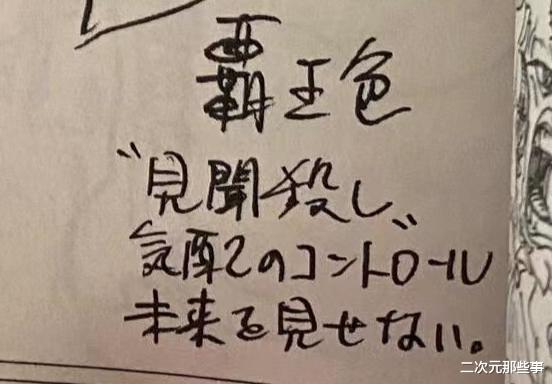 覇王色
"見聞殺し"
気配のコントロール
未来を見せない。
二次元那些事